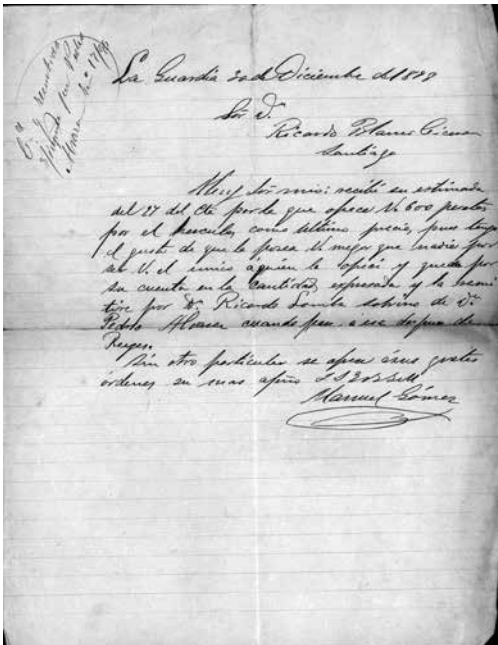 La Guardia 30 de Diciembre de 1898
Sor Dn
Ricardo Blanco Cicerón
Santiago
Muy Sor mio: recibí su estimada
del 27 del cte por la que ofrece V. 600 pesetas
por el hercules, como último precio, pues tengo
el gusto de que lo posea V. mejor que nadie por
ser V. el unico á quien le ofrecí y queda por
su cuenta en la cantidad expresada y lo remi
tire por Dn Ricardo sobrino de Dn
Pedro Alvarez cuando pase á esa despues de
Reyes.
Sin otro particular se ofrece á sus gratas
órdenes su mas afmo
Manuel Gómez